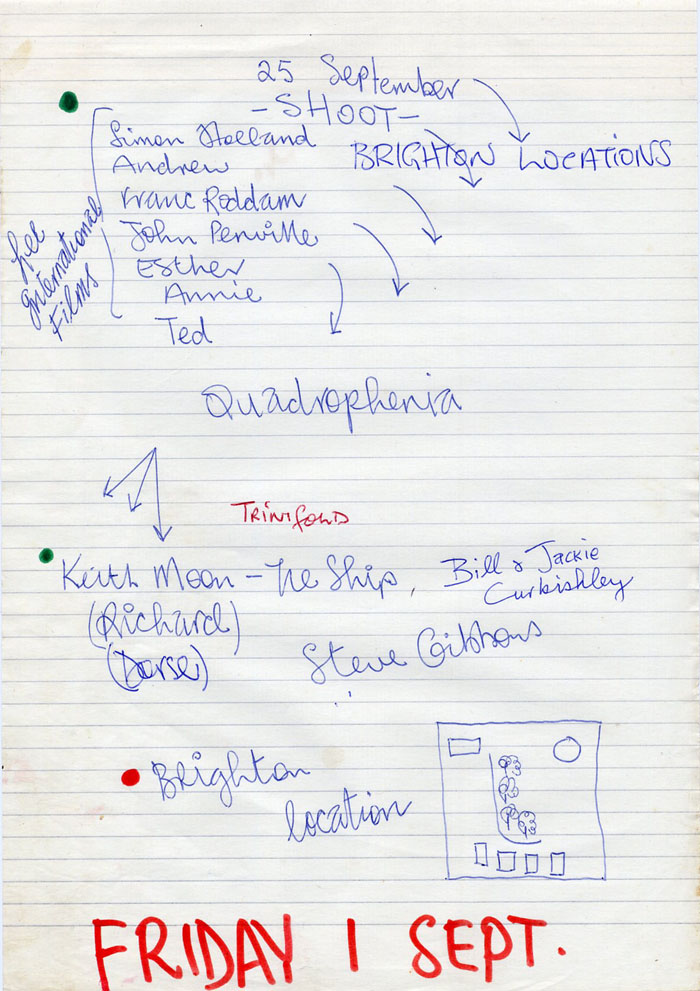 25 September
- SHOOT -
BRIGHTON LOCATIONS
Simon Holland
Andrew
Franc Roddam
John Penville
Esther
Annie
Ted
Lee
International
Films
Quadrophenia
TRINIFOLD
Keith Moon - The Ship, Bill & Jackie
Curbishley
(Richard)
(Dorse)
Steve Gibbons
Brighton
location
FRIDAY 1 SEPT.